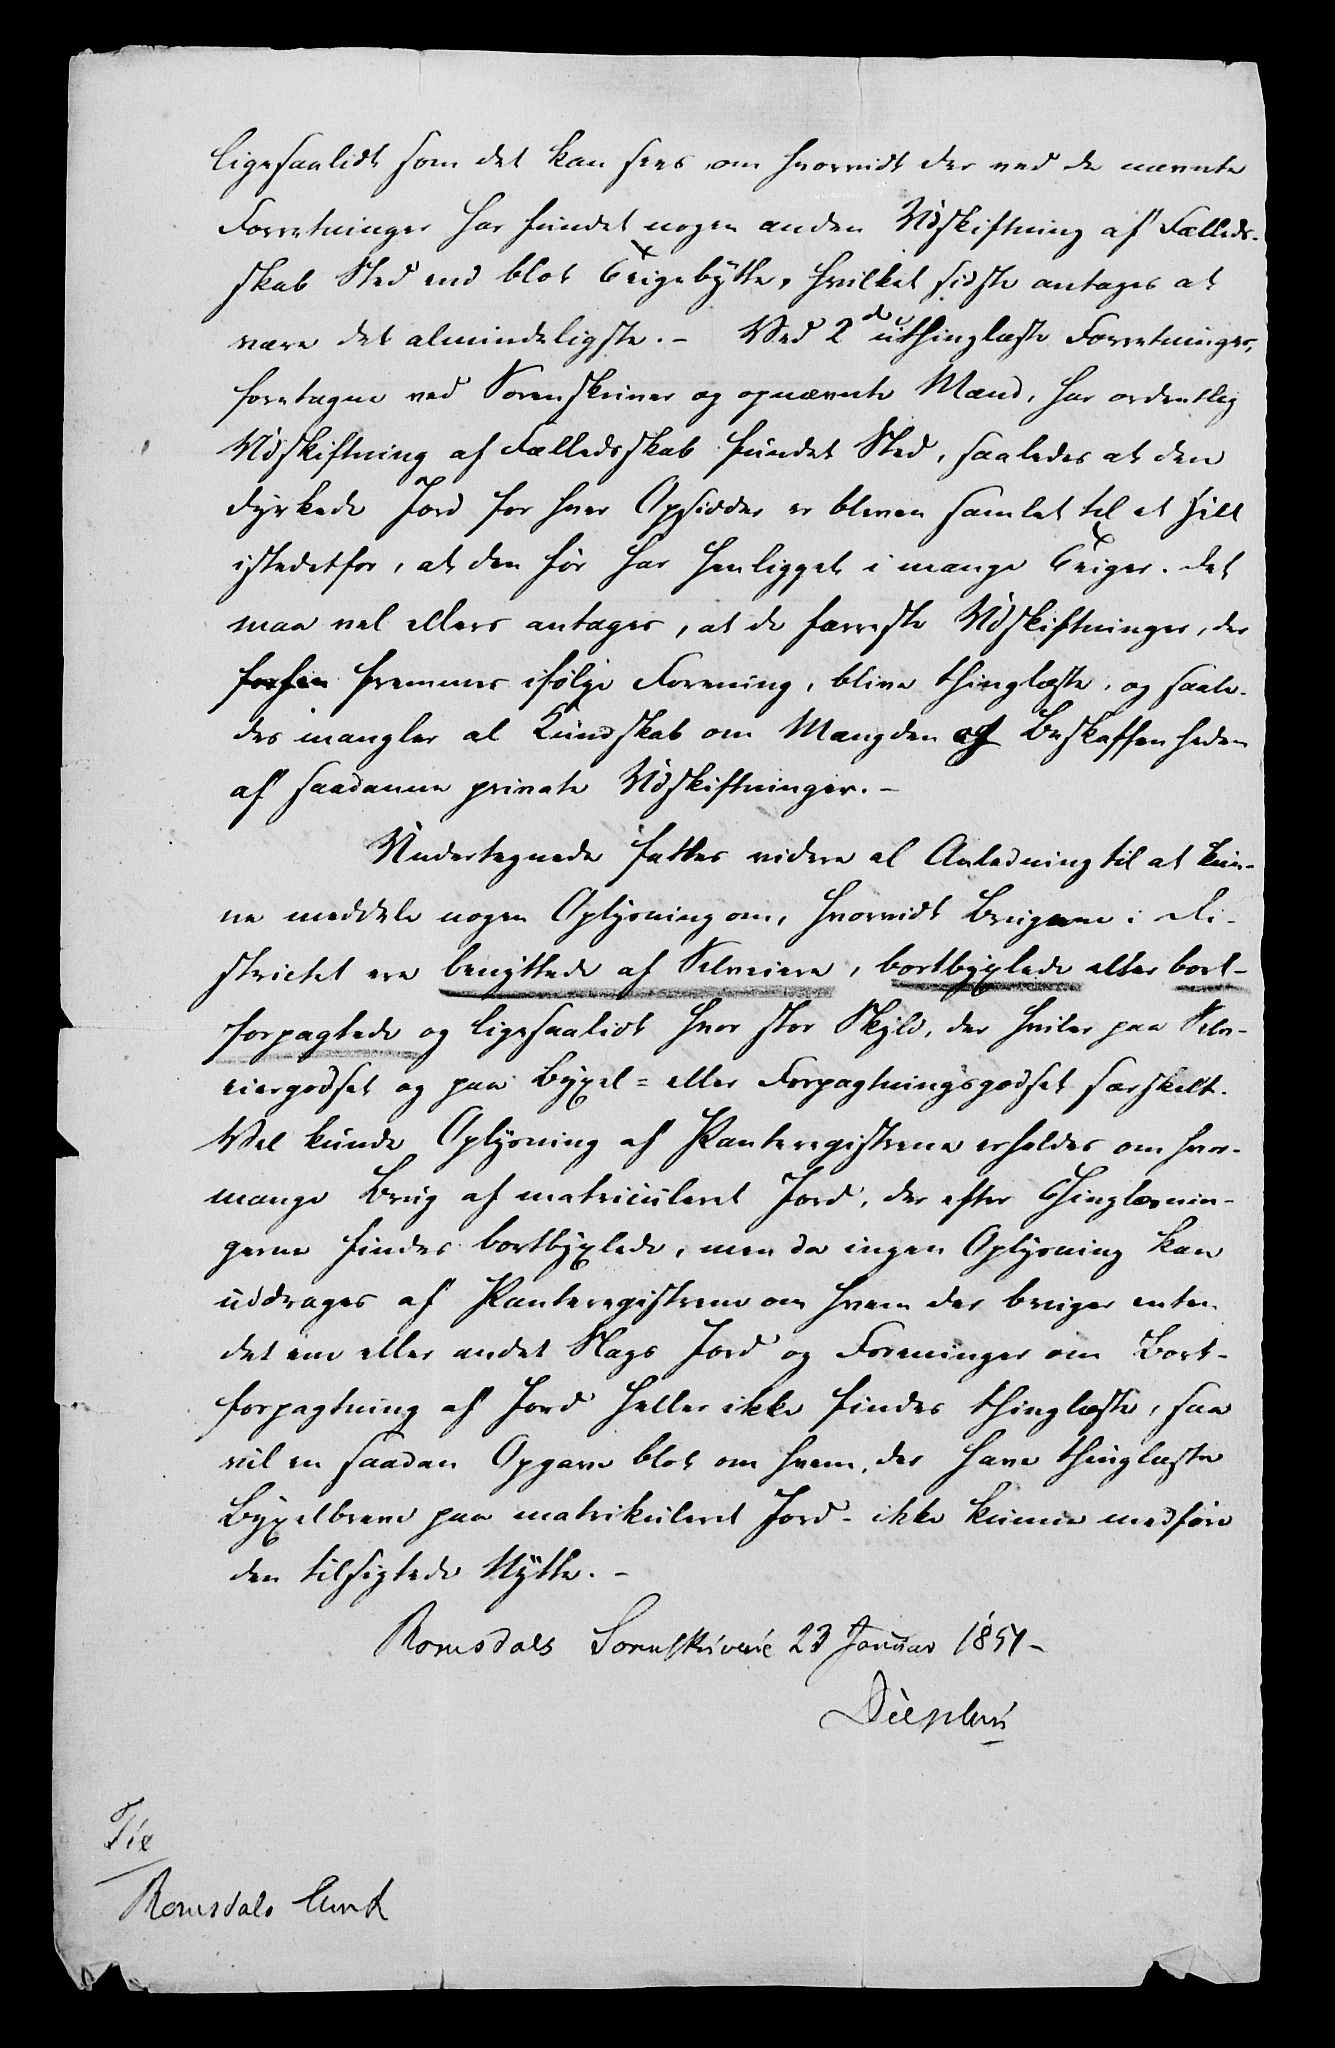 ligesaalidt som det kan sees om hvorvidt der ved de nævnte
Forretninger har fundet nogen anden Udskiftning af Fælleds-
skab Sted end blot Teigebytte, hvilket sidste antages at
være det almindeligste. – Ved 2de uthinglæste Forretninger,
foretagne ved Sorenskriver og opnævnte Mænd, har ordentlig
Udskiftning af Fælledsskab fundet Sted, saaledes at den
dyrkede Jord for hver Opsidder er bleven samlet til et Hele
istedetfor, at den før har henligget i mange Teiger. Det
maa vel ellers antages, at de færreste Udskiftninger, der
fremmes ifølge Forening, blive thinglæste, og saale-
des mangler al Kundskab om Mængden og Beskaffenheden
af saadanne private Udskiftninger. –
Undertegnede fattes videre al Anledning til at kun-
ne meddele nogen Oplysning om, hvorvidt Brugene i Di-
strictet ere benyttede af Selveiere, bortbyxlede eller bort-
forpagtede og ligesaalidt hvor stor Skyld, der hviler paa Selv-
eiergodset og paa Byxel- eller Forpagtningsgodset særskilt.
Vel kunde Oplysning af Panteregistrene erholdes om hvor-
mange Brug af matriculeret Jord, der efter Thinglæsnin-
gerne findes bortbyxlede, men da ingen Oplysning kan
uddrages af Panteregistrene om hvem der bruger enten
det ene eller andet Slags Jord og Foreninger om Bort-
forpagtning af Jord heller ikke findes thinglæste, saa
vil en saadan Opgave blot om hvem, der have thinglæste
Byxelbreve paa matrikuleret Jord – ikke kunne medføre
den tilsigtede Nytte. –
Romsdals Sorenskriverie 23 Januar 1851 –
Til
Romsdals Amt